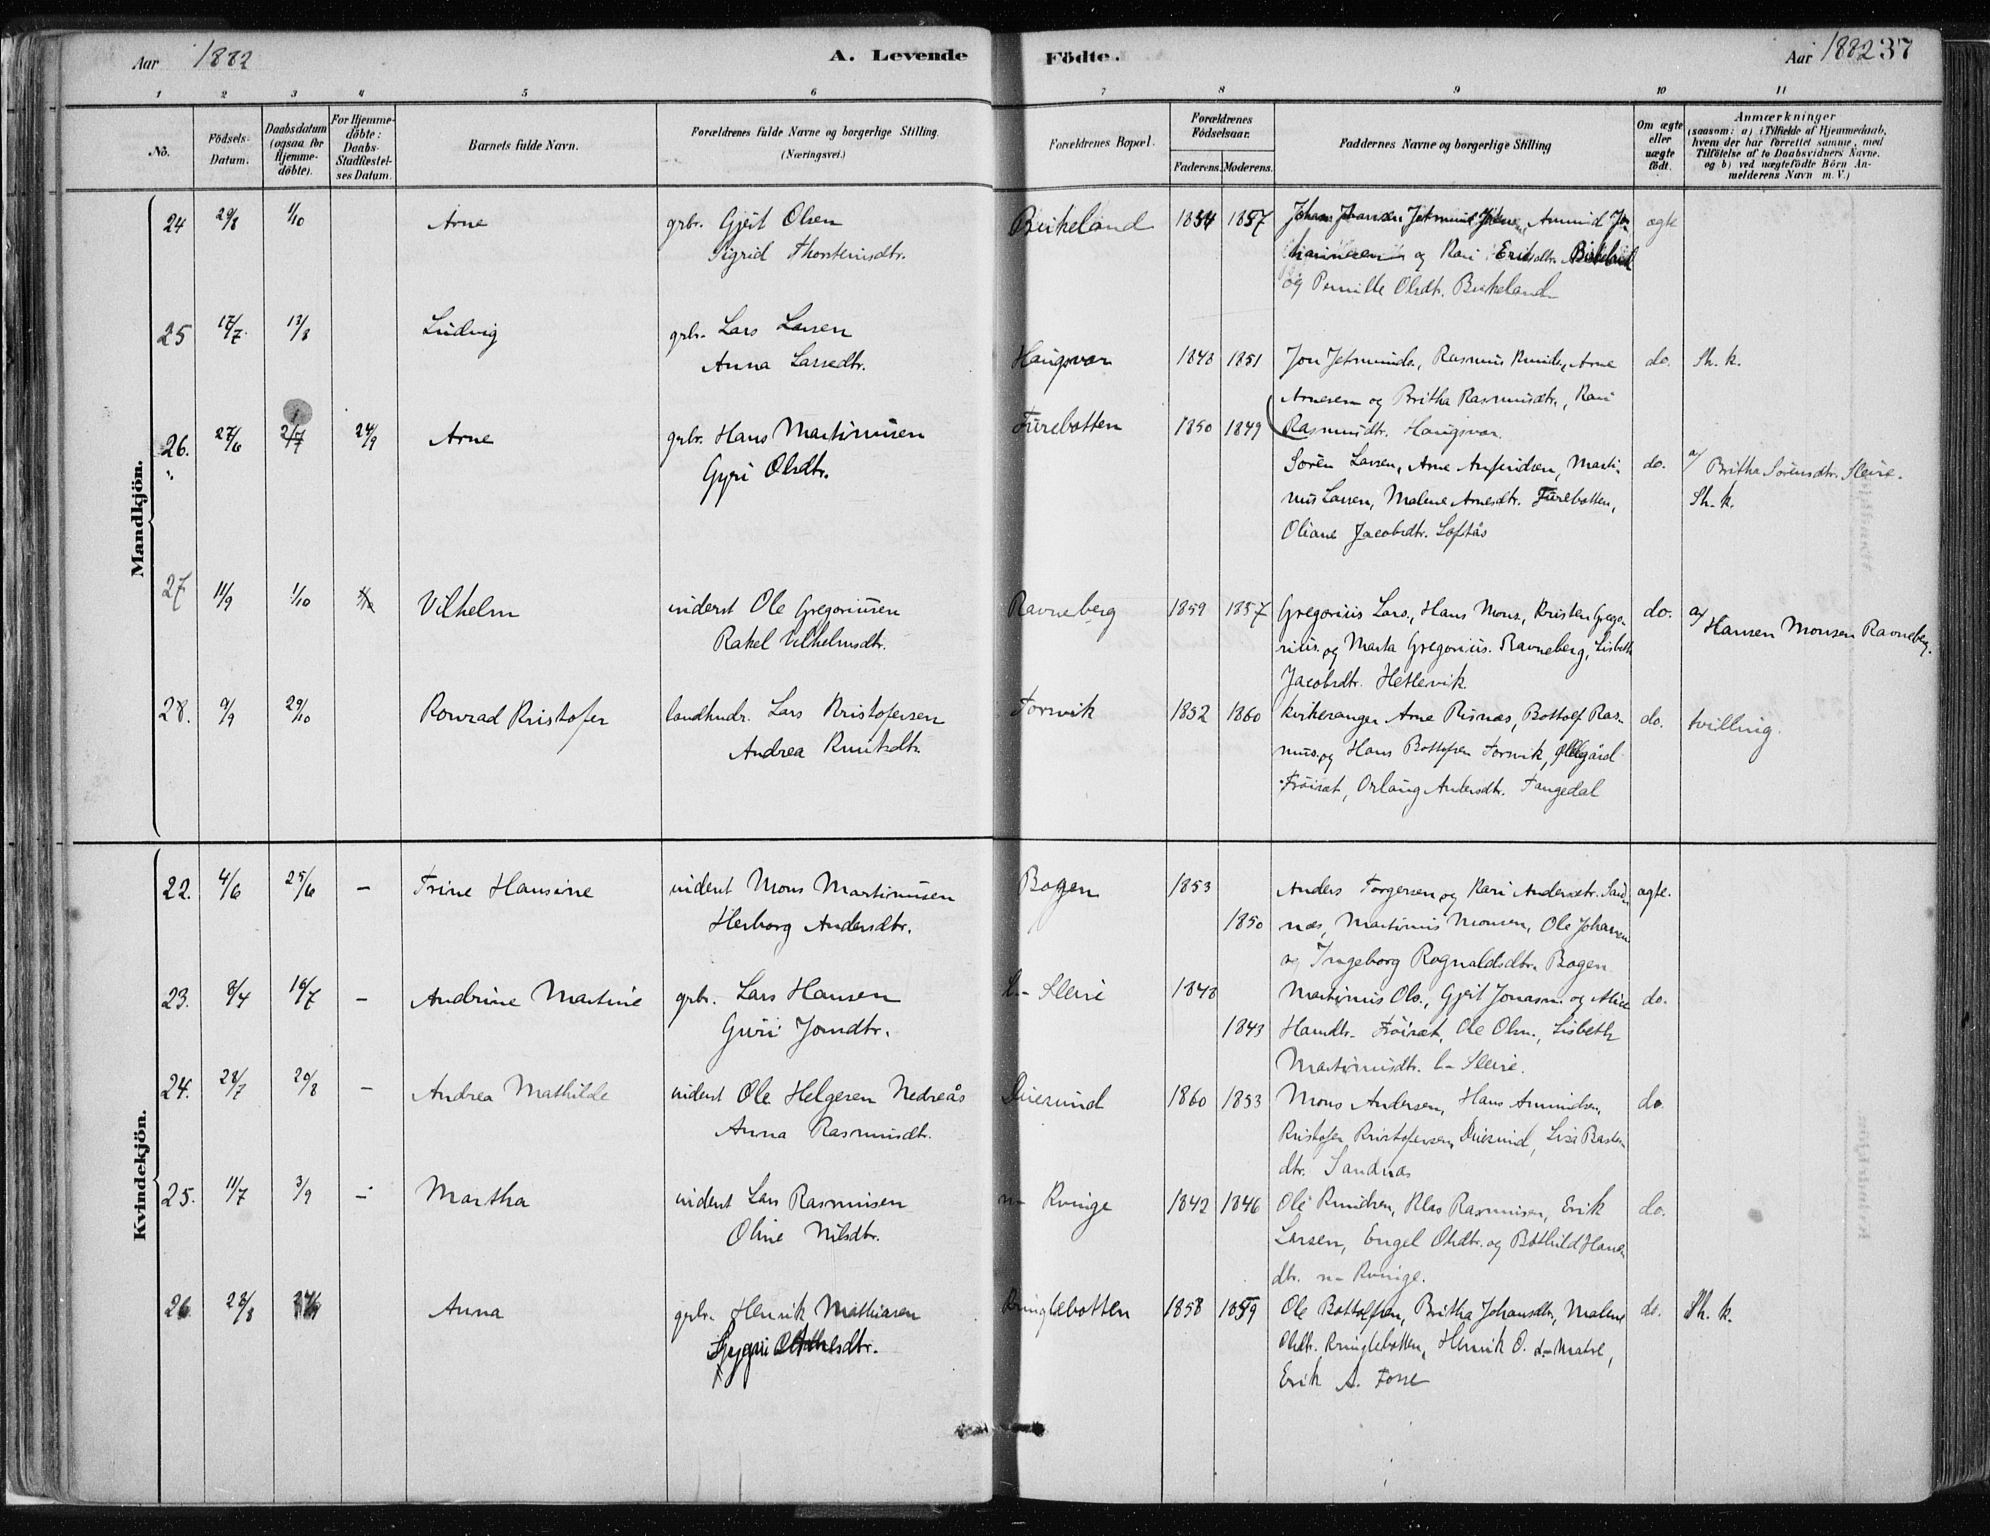 Aar 1882 A. Levende Födte. Aar 1882 37
1 2 3 4 5 6 7 8 9 10 11
No. Födsels-Datum. Daabsdatum (ogsaa for Hjemme-döbte). For Hjemme-döbte: Daabs-Stadfæstel-ses Datum. Barnets fulde Navn. Forældrenes fulde Navne og borgerlige Stilling. (Næringsvei.) Forældrenes Bopæl. Forældrenes Födselsaar. Faderens. Moderens. Faddernes Navne og borgerlige Stilling Om ægte eller uægte födt. Anmærkninger (saasom: a) i Tilfælde af Hjemmedaab, hvem der har forrettet samme, med Tilföielse af to Daabsvidners Navne. og b) ved uægtefödte Börn An-melderens Navn m. V.)
Mandkjön.
24 29/8 1/10 Arne grbr. Gjert Olsen Birkeland 1854 1857 Johan Johansen, Amund Jo- ægte
Sigrid Thorsteinsdtr. og Kari Eriksdtr.
og Pernille Olsdtr. Birkeland
25 17/7 13/8 Ludvig grbr. Lars Larsen
Anna Larsdtr. Haugsvær 1848 1851 Jon Jetmunds., Rasmus Knuds., Arne do. Sh. k.
Arnesen og Britha Rasmusdtr., Kari
Rasmusdtr. Haugsvær.
26. 27/6 2/7 24/9 Arne grbr. Hans Martinusen Furebotten 1850 1849
Gyri Olsdtr. Sören Larsen, Arne Amfindsen, Marti- do. a/ Britha Sörensdtr. Sleire.
nus Larsen, Malene Arnesdtr. Furebotten, Sh. k.
Oliane Jacobsdtr. Loftås
27 11/9 1/10 Vilhelm inderst Ole Gregoriusen Ravneberg 1859 1857 Gregorius Lars., Hans Mons., Kristen Grego- do. a/ Hansen Monsen Ravneberg.
Rakel Vilhelmsdtr. rius. og Marta Gregorius. Ravneberg, Lisbeth
Jacobsdtr. Hetlevik
28. 9/9 29/10 Konrad Kristofer landhndr. Lars Kristofersen Forvik 1852 1860 kirkesanger Arne Risnæs, Bottolf Ras- do. tvilling.
Andrea Knutsdtr. mus. og Hans Bottolfsen Forvik,
Fröiset, Orlaug Andersdtr. Tangedal
Kvindekjön.
22. 4/6 25/6 – Trine Hansine inderst Mons Martinusen Bogen 1853 Anders Torgersen og Kari Andersdtr. Sand- ægte.
Herborg Andersdtr. 1850 næs, Martinus Monsen, Ole Johannes
og Ingeborg Rognaldsdtr. Bogen
23. 8/4 16/7 – Andrine Martine grbr. Lars Hansen L– Sleire 1848 Martinus Ols., Gjert Jonasn. og Alice do.
Guri Jonsdtr. 1843 Hansdtr. Fröiset, Ole Olsn., Lisbeth
Martinusdtr. L– Sleire.
24. 28/7 20/8 – Andrea Mathilde inderst Ole Helgesen Nedreås Duesund 1860 1853 Mons Andersen, Hans Amundsen, do.
Anna Rasmusdtr. Kristofer Kristofersen Duesund, Lisa
dtr. Sandnæs
25. 11/7 3/9 – Martha inderst Lars Rasmusen n– Kvinge 1842 1846 Ole Knudsen, Klas Rasmusen, Erik do.
Oline Nilsdtr. Larsen, Engel Olsdtr. og Bothild Hans-
dtr. n– Kvinge.
26 28/8 24/9 Anna grbr. Henrik Mathiasen Kringlebotten 1858 1859 Ole Bottolfsen, Britha Johansdtr., Malene do. Sh. k.
Olsdtr. Kringlebotten, Henrik O. d– Matre,
Erik A. Fosse